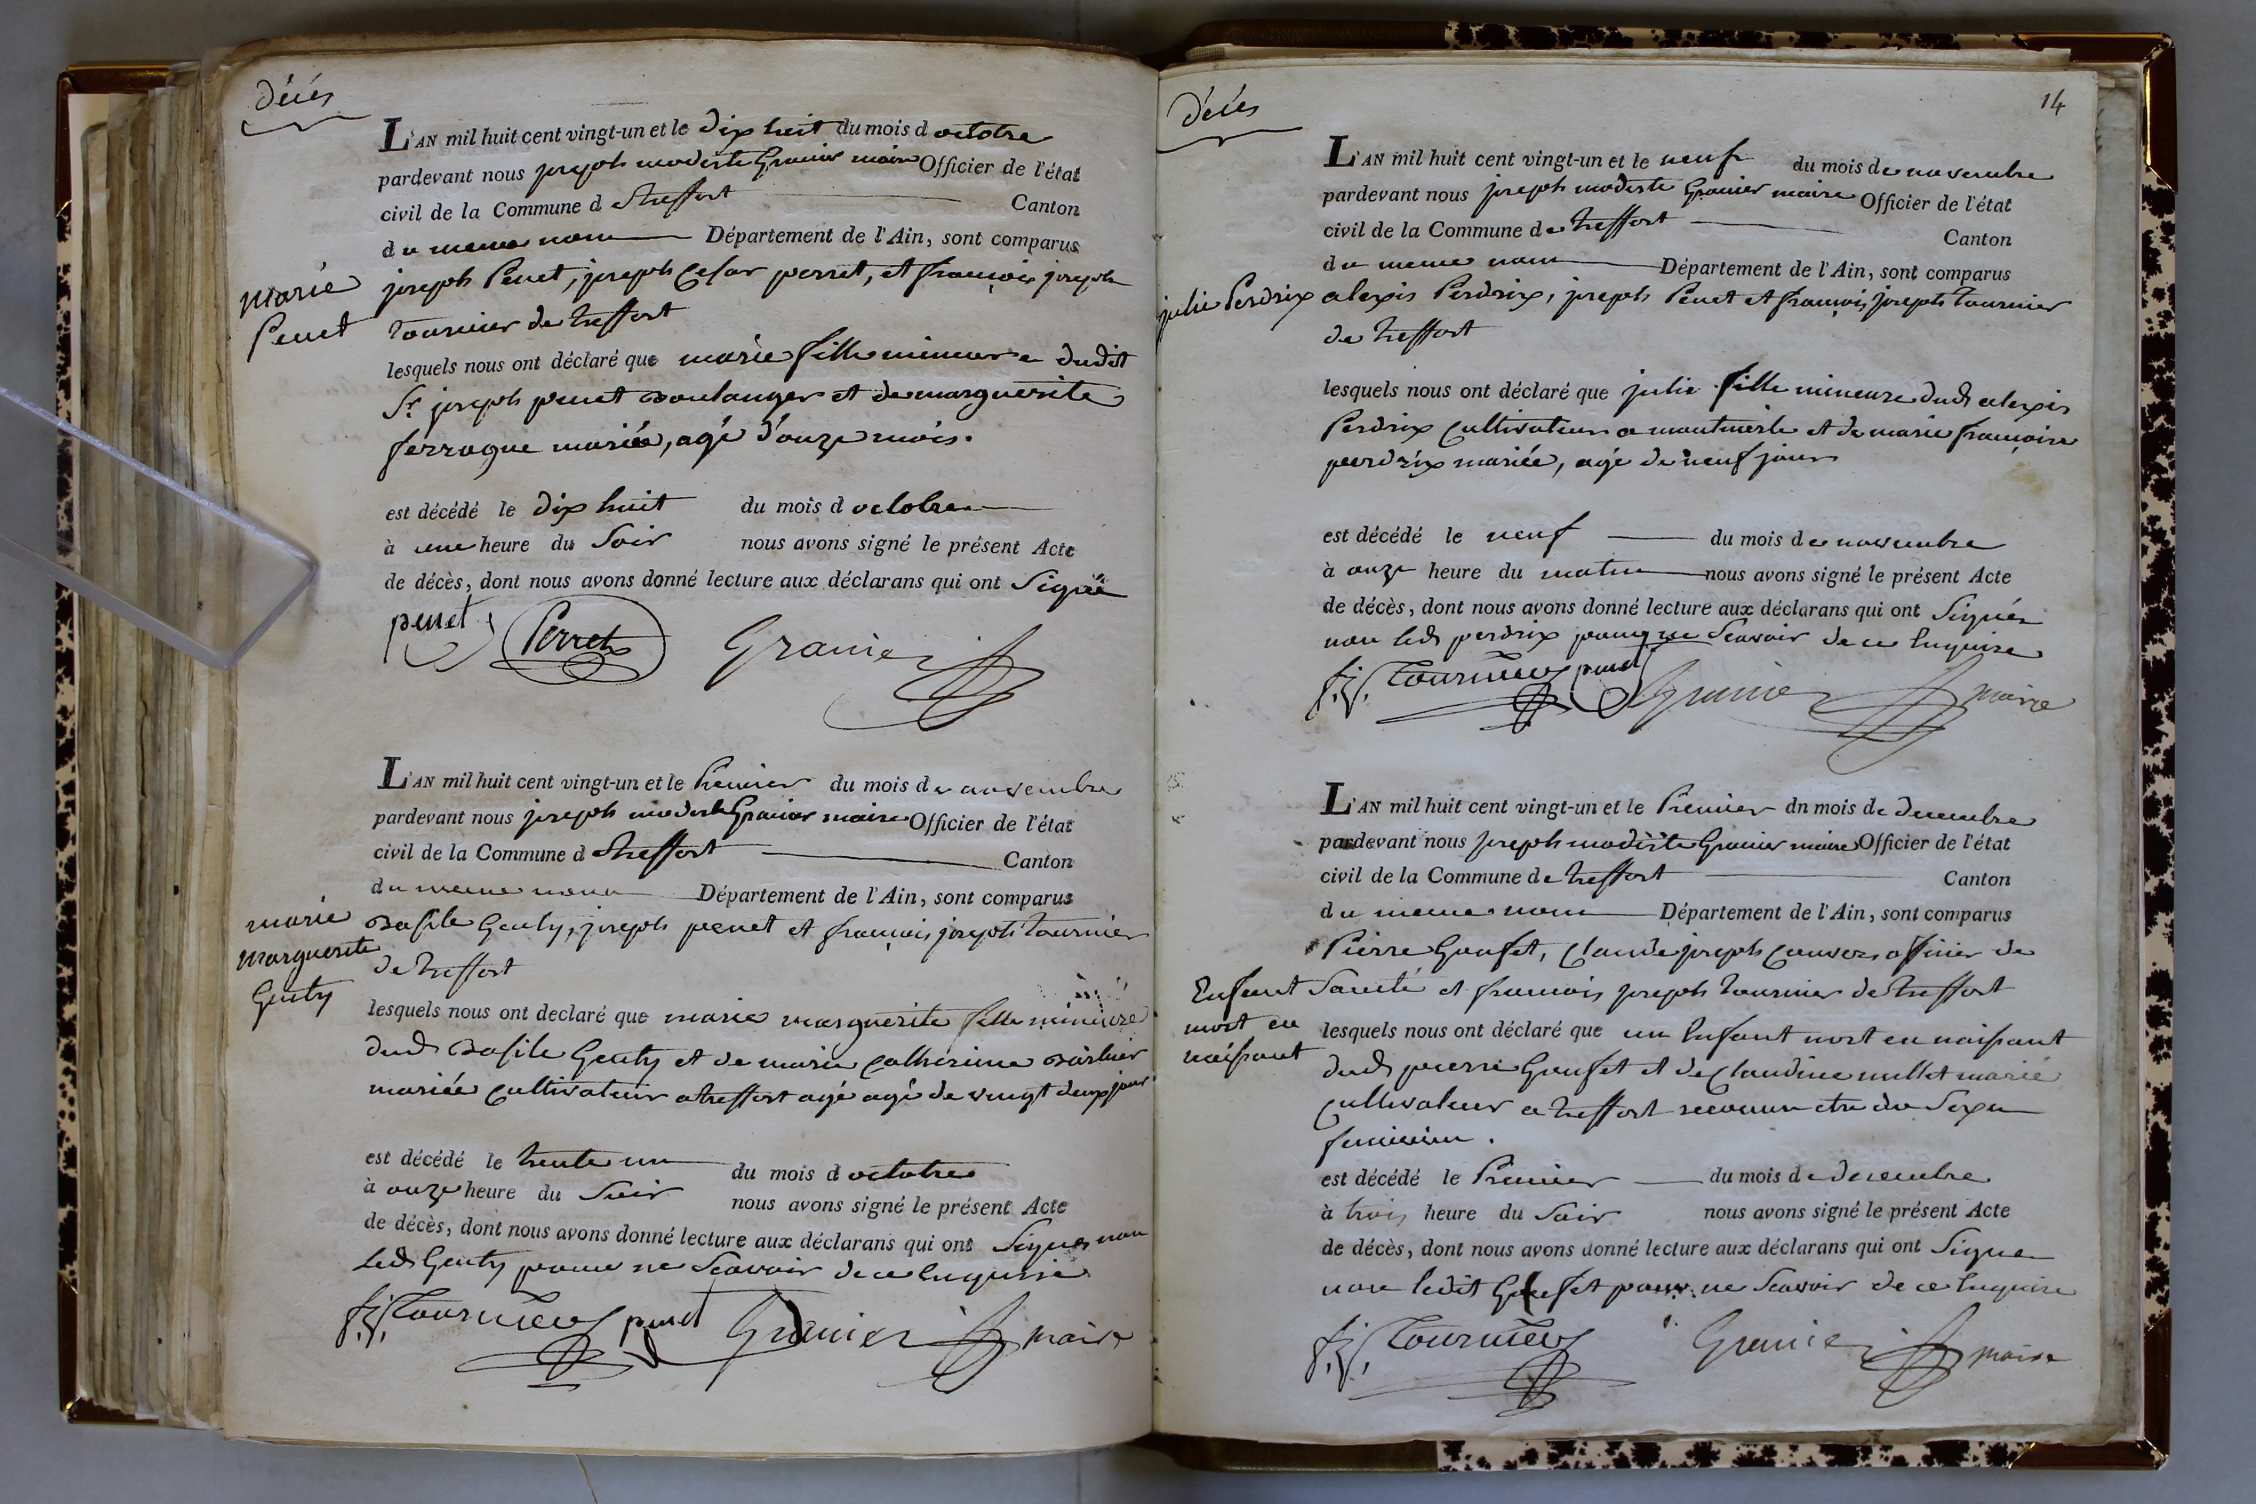 décés
L'AN mil huit cent vingt-un et le dix huit du mois d octobre
pardevant nous joseph modeste Granier maire Officier de l'état
civil de la Commune d treffort Canton
du meme nom Département de l'Ain, sont comparus
Marie
Penet
joseph Penet, joseph Cesar perret, et françois joseph
tournier de treffort
lesquels nous ont déclaré que marie fille mineure dudit
Sr joseph penet Boulanger et de marguerite
ferrague mariée, agé d'onze mois.
est décédé le dix huit du mois d octobre
à une heure du Soir nous avons signé le présent Acte
de décès, dont nous avons donné lecture aux déclarans qui ont Signé
penet Perret Granier
L'AN mil huit cent vingt-un et le Premier du mois de novembre
pardevant nous joseph modeste Granier maire Officier de l'état
civil de la Commune d treffort Canton
du meme nom Département de l'Ain, sont comparus
marie
marguerite
Genty
Basile Genty, joseph penet et françois joseph tournier
de treffort
lesquels nous ont declaré que marie marguerite fille mineure
dud Basile Genty et de marie Catherine Barbier
mariée Cultivateur a treffort agé agé de vingt deux jour
est décédé le trente un du mois d octobre
à onze heure du Soir nous avons signé le présent Acte
de décès, dont nous avons donné lecture aux déclarans qui ont Signer non
led Genty pour ne Scavoir de ce Enquérie
f. j. Tournier penet Granier maire
14
décés
L'AN mil huit cent vingt-un et le neuf du mois de novembre
pardevant nous joseph modeste Granier maire Officier de l'état
civil de la Commune de treffort Canton
du meme nom Département de l'Ain, sont comparus
julie Perdrix
alexis Perdrix, joseph Penet et françois joseph tournier
de treffort
lesquels nous ont déclaré que julie fille mineure dud alexis
Perdrix Cultivateur a montmerle et de marie françoise
perdrix mariée, agé de neuf jour
est décédé le neuf du mois de novembre
à onze heure du matin nous avons signé le présent Acte
de décès, dont nous avons donné lecture aux déclarans qui ont Signés
non led perdrix pour ne Scavoir de ce Enquise
f. j. Tournier penet Granier maire
L'AN mil huit cent vingt-un et le Premier dn mois de decembre
pardevant nous joseph modeste Granier maire Officier de l'état
civil de la Commune de treffort Canton
du meme nom Département de l'Ain, sont comparus
Enfant
mort en
naissant
Pierre Goufet, Claude joseph officier de
Santé et francois joseph tournier de treffort
lesquels nous ont déclaré que un Enfant mort en naissant
dud pierre Goufet et de Claudine millet marié
Cultivateur a treffort reconnu etre du Sexe
feminin.
est décédé le Premier du mois de decembre
à trois heure du Soir nous avons signé le présent Acte
de décès, dont nous avons donné lecture aux déclarans qui ont Signer
non ledit Goufet pour ne Scavoir de ce Enquise
f. j. Tournier Granier maire